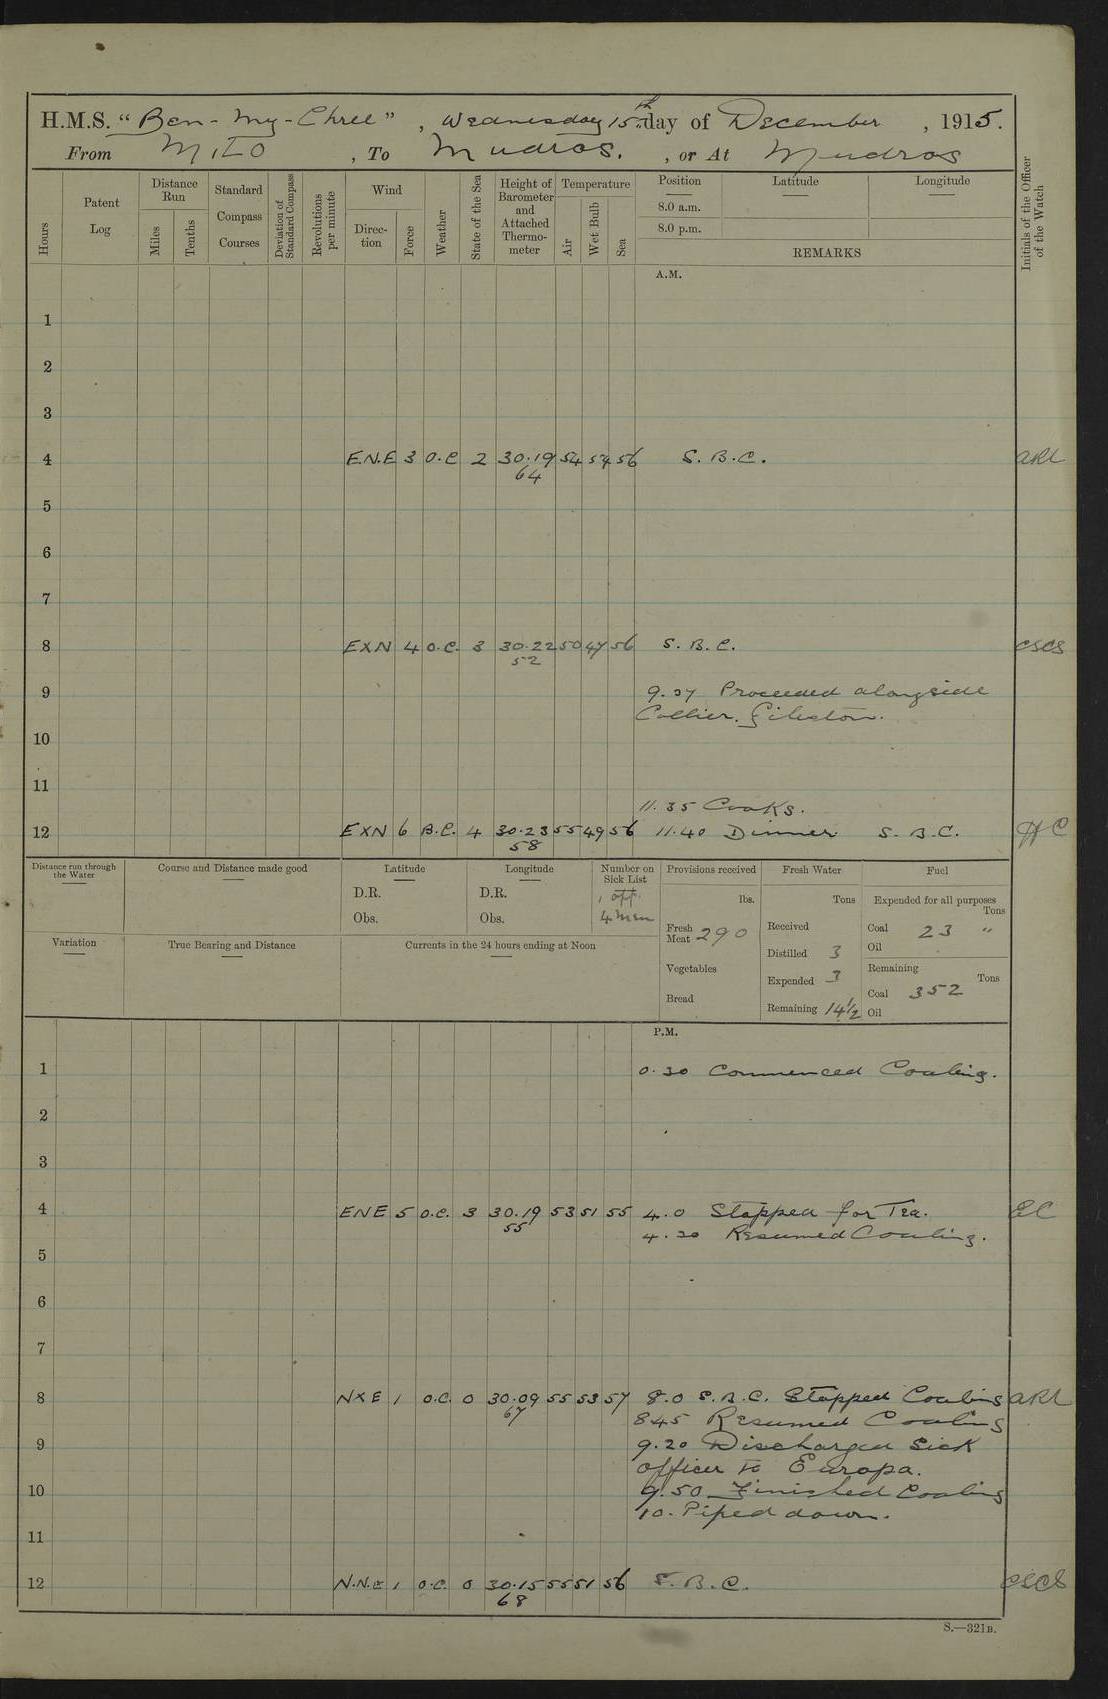 H.M.S. "Ben-my-Chree", Wednesday 15th day of December, 1915.
From Milo, To Mudros., or At Mudros
Hours
Patent Log
Distance Run
Miles
Tenths
Standard Compass Courses
Deviation of Standard Compass
Revolutions per minute
Wind
Direction
Force
Weather
State of the Sea
Height of Barometer and Attached Thermometer
Temperature
Air
Wet Bulb
Sea
Position
Latitude
Longitude
8.0 a.m.
8.0 p.m.
REMARKS
Initials of the Officer of the Watch
A.M.
1
2
3
4 E.N.E 3 O.C 2 30.19 54 54 56 S.B.C. ARL
64
5
6
7
8 EXN 4 O.C. 3 30.22 50 47 56 S.B.C. CSCS
52
9 9.27 Proceeded alongside
Collier.
10
11
11.35 Cooks.
12 EXN 6 B.C. 4 30.23 55 49 56 11.40 Dinner S.B.C. HC
58
Distance run through the Water
Course and Distance made good
Latitude
D.R.
Obs.
Longitude
D.R.
Obs.
Number on Sick List
1 off.
4 men
Provisions received
lbs.
Fresh Meat 290
Vegetables
Bread
Fresh Water
Tons
Received
Distilled 3
Expended 3
Remaining 14½
Fuel
Expended for all purposes
Tons
Coal 23 "
Oil
Remaining
Tons
Coal 352
Oil
Variation
True Bearing and Distance
Currents in the 24 hours ending at Noon
P.M.
1 0.30 Commenced Coaling.
2
3
4 ENE 5 O.C. 3 30.19 53 51 55 4.0 Stopped for Tea. EC
55 4.30 Resumed Coaling.
5
6
7
8 NXE 1 O.C. 0 30.09 55 53 57 8.0 S.B.C. Stopped Coaling ARL
67 845 Resumed Coaling
9 9.20 Discharged Sick
officer to Europa.
10 9.50 Finished Coaling
10. Piped down.
11
12 N.N.E 1 O.C. 0 30.15 55 51 56 S.B.C. CSCS
68
S.—321B.